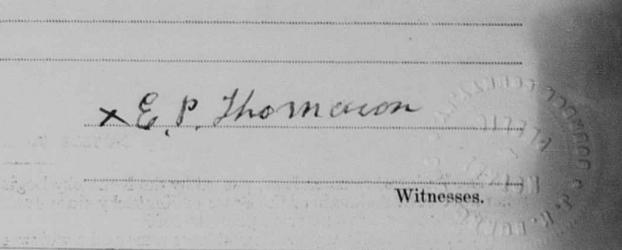 × E. P. Thomason
Witnesses.